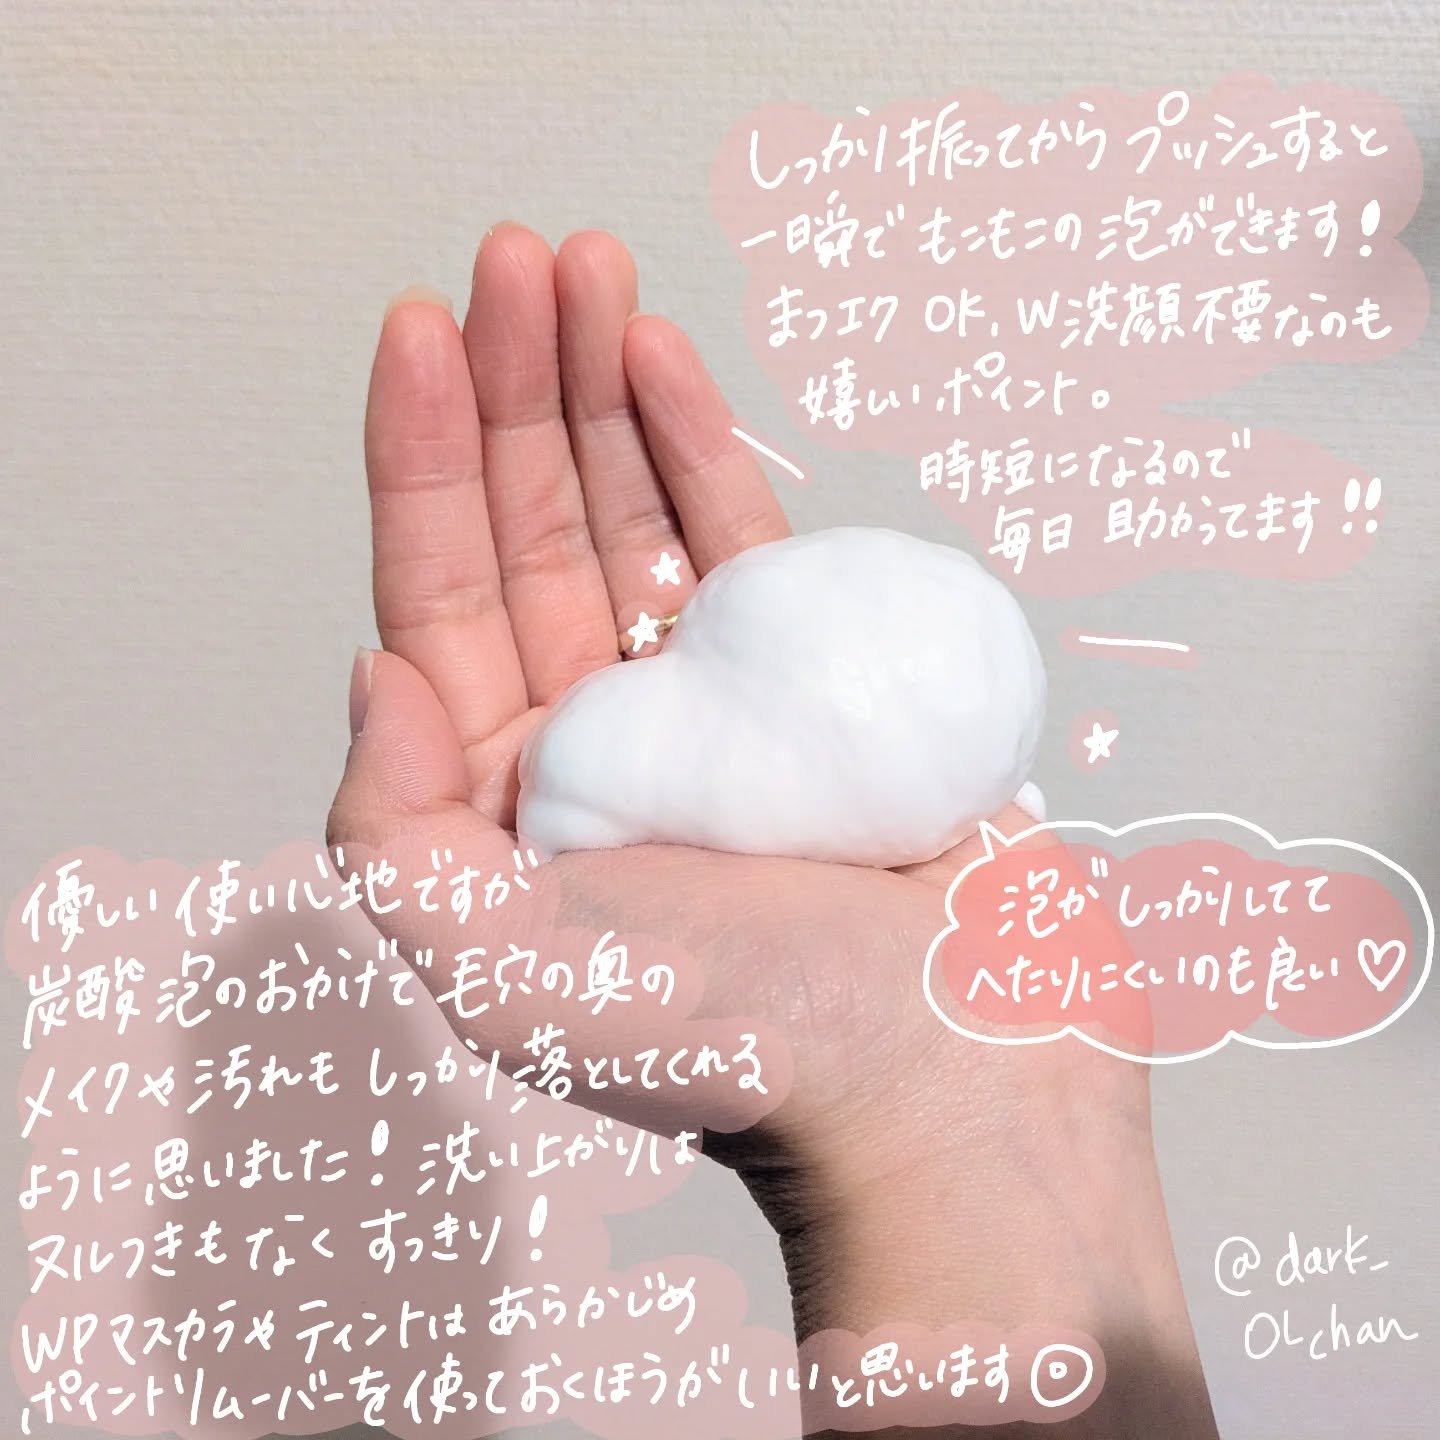 しっかり振ってからプッシュすると
一瞬でもこもこの泡ができます!
まつエクOK、W洗顔不要なのも
嬉しいポイント。
時短になるので
毎日助かってます!!
泡がしっかりしてて
へたりにくいのも良い♡
優しい使い心地ですが
炭酸泡のおかげで毛穴の奥の
メイクや汚れもしっかり落としてくれる
ように思いました!洗い上がりは
ヌルつきもなくすっきり!
WPマスカラやティントはあらかじめ
ポイントリムーバーを使っておくほうがいいと思います◎
@dark_
OLchan